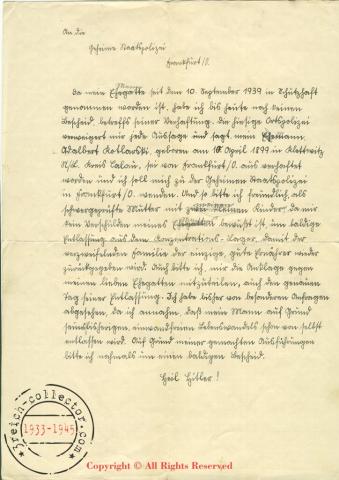 An die
Geheime Staatspolizei
Frankfurt/O.
Da mein Ehegatte seit dem 10. September 1939 in Schutzhaft
genommen worden ist, habe ich bis heute noch keinen
Bescheid, betreffs seiner Verhaftung. Die hiesige Ortspolizei
verweigert mir jede Aussage und sagt, mein Ehemann,
Adalbert Kotlarski, geboren am 10. April 1899 in Klettwitz
N/L. Kreis Calau, sei von Frankfurt/O. aus verhaftet
worden und ich soll mich zu der Geheimen Staatspolizei
in Frankfurt/O. wenden. Und so bitte ich freundlich, als
schwergeprüfte Mutter mit zwei kleinen Kinder, da mir
kein Verschulden meines bewußt ist, um baldige
Entlassung aus dem Konzentrations-Lager, damit der
verzweifelnden Familie der einzige, gute Ernährer wieder
zurückgegeben wird. Auch bitte ich, mir die Anklage gegen
meinen lieben Ehegatten mitzuteilen, auch den genauen
Tag seiner Entlassung. Ich habe bisher von besonderen Anfragen
abgesehen, da ich annahm, daß mein Mann auf Grund
seines bisherigen, einwandfreien Lebenswandels schon von selbst
entlassen wird. Auf Grund meiner gemachten Ausführungen
bitte ich nochmals um einen baldigen Bescheid.
Heil Hitler!
3reich-collector.com
1933-1945
Copyright © All Rights Reserved